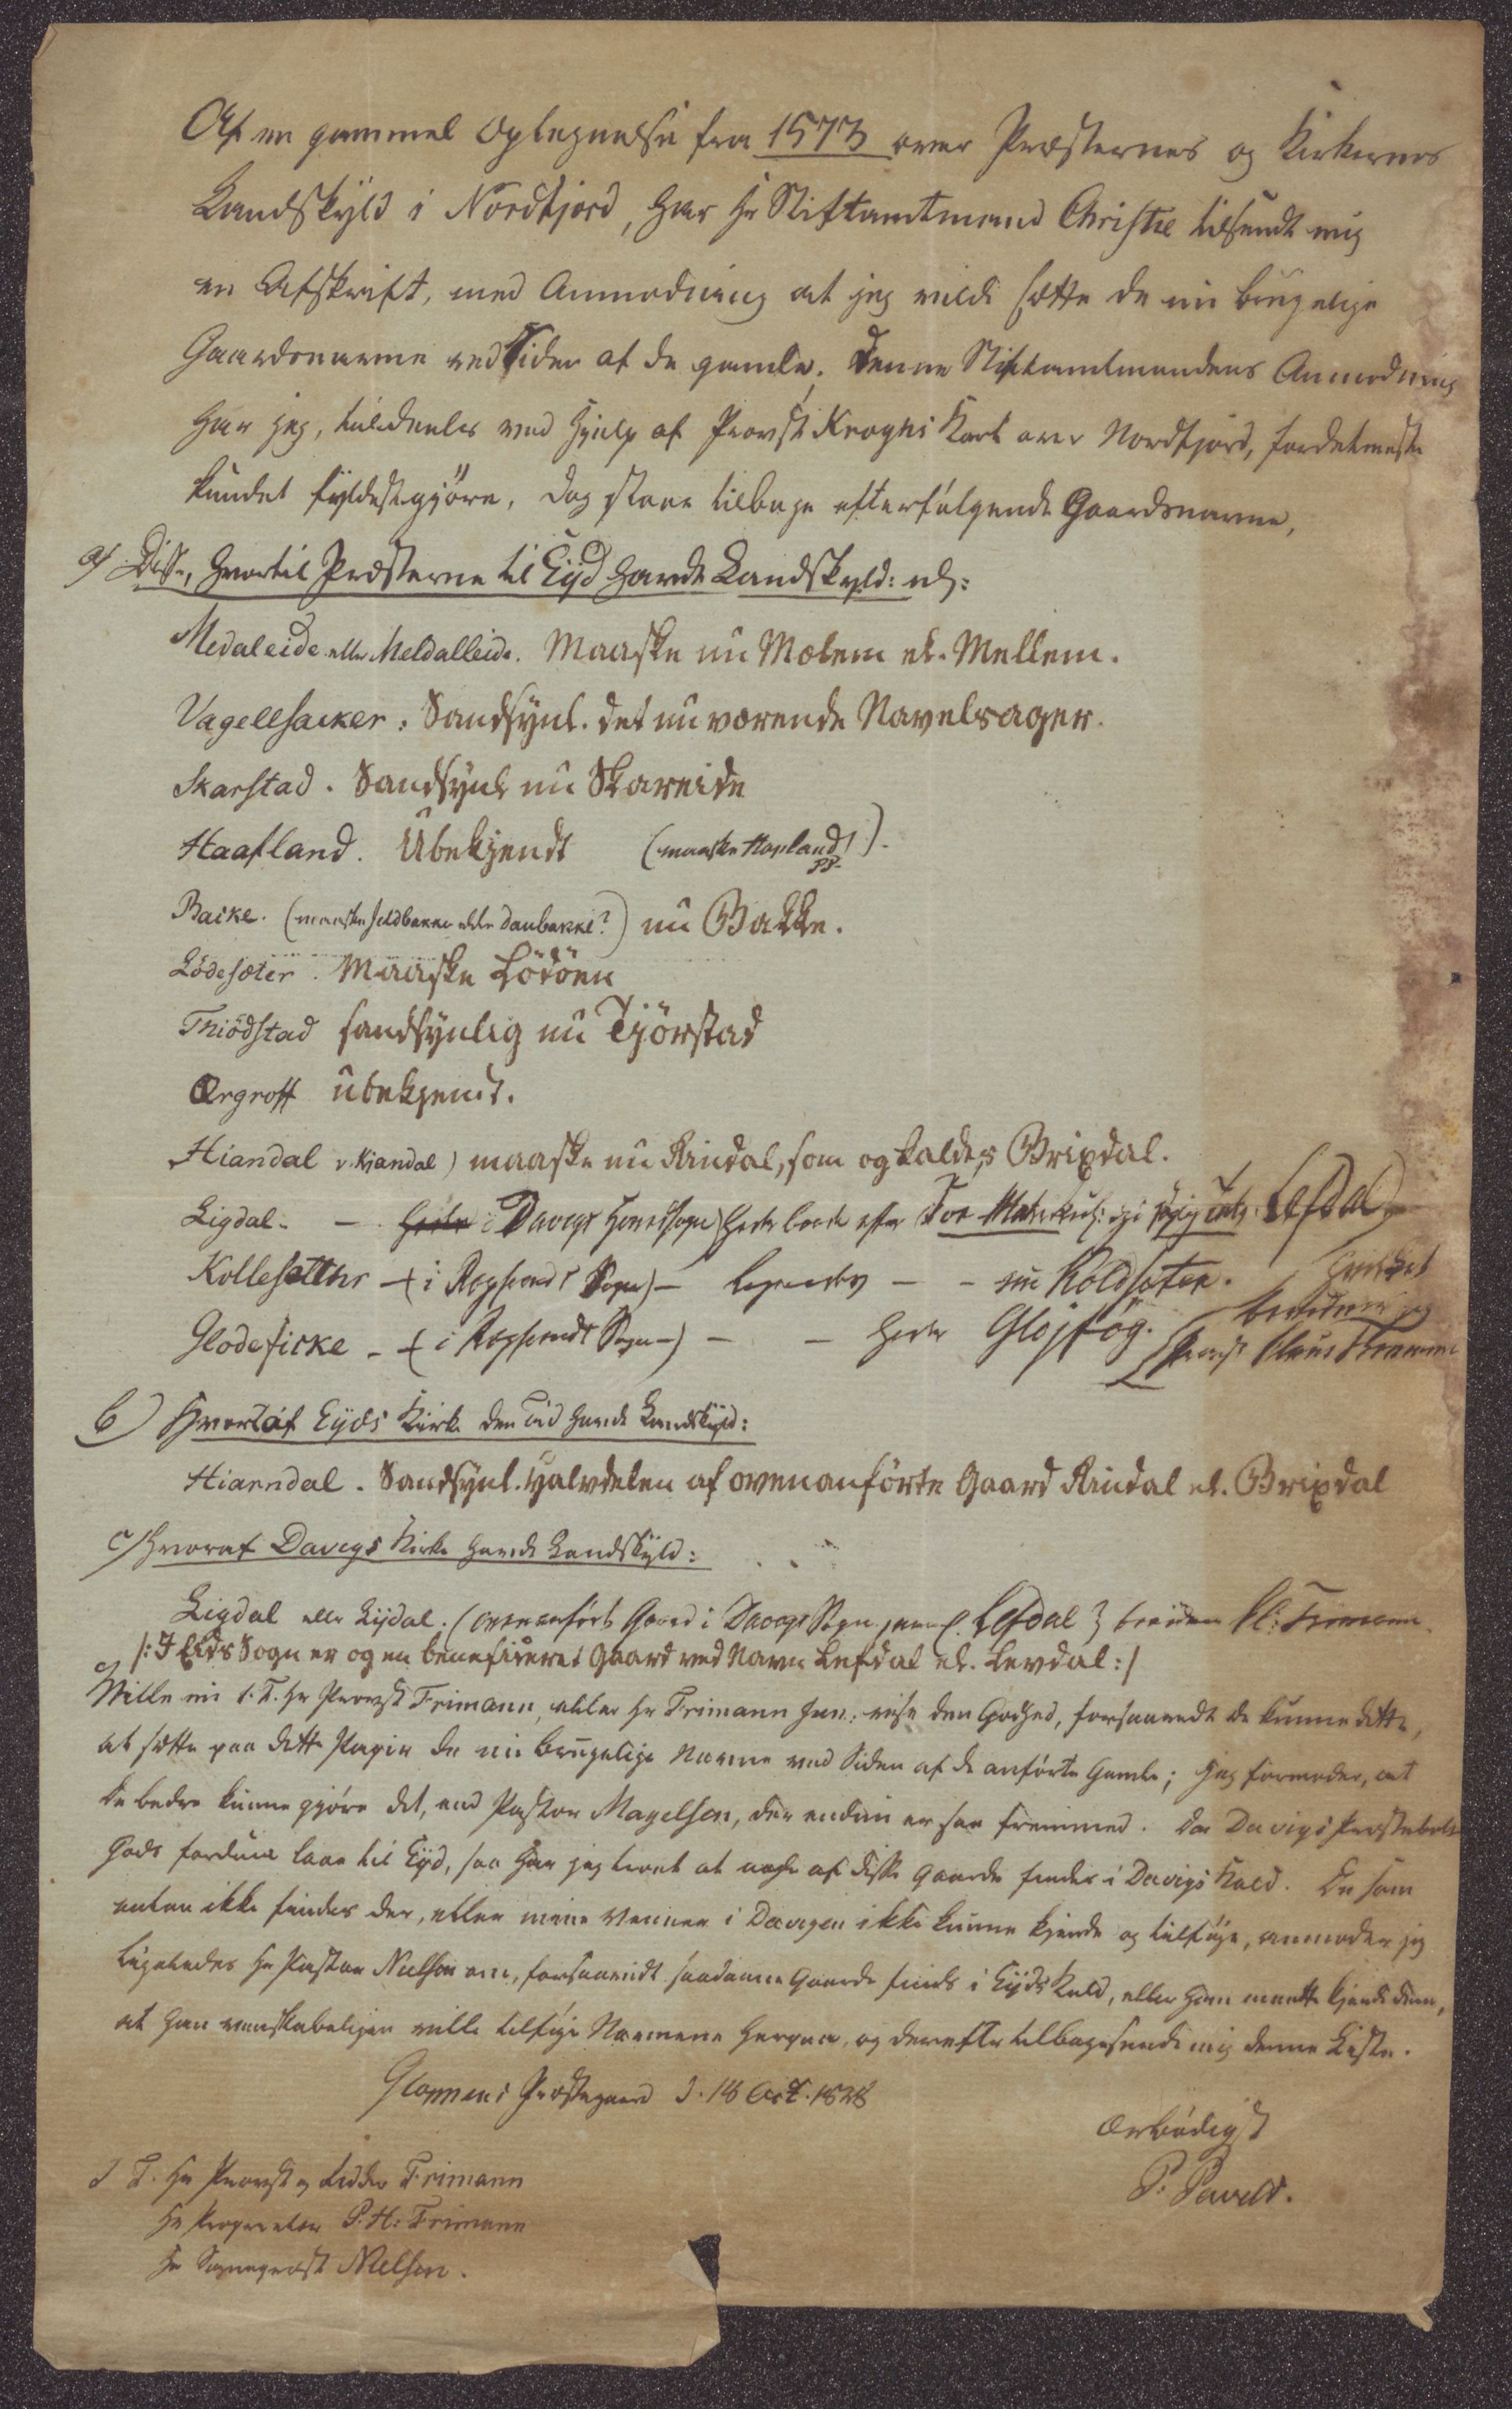 Af en gammel Optegnelse fra 1573 over Præsternes og Kirkernes
Landskyld i Nordfjord, har Hr Stiftamtmand Christie tilsendt mig
en Afskrift, med Anmodning at jeg vilde sætte de nu brugelige
Gaardsnavne ved Siden af de gamle. Denne Stiftamtmandens Anmodning
har jeg, tildeels ved Hjelp af Provst Kroghs Kart over Nordfjord, fordetmeste
kundet fyldestgjöre, dog staae tilbage efterfölgende Gaardsnavne,
a) Disse, hvortil Præsterne til Eijd havde Landskyld: nl:
Medaleide eller Meldalleide. Maaske nu Mælem el. Mellem.
Vagellsacker: Sandsynl. det nuværende Navelsager.
Skarstad. Sandsynl nu Skareide
Haafland. Ubekjendt (maaske Hopland)
PP.
Backe. (maaske Seldbakke eller Daubakke?) nu Bakke.
Lödesæter. Maaske Lödöen
Thiödstad sandsynlig nu Tjörstad
Ærgroff ubekjendt.
Hiandal v. Kjandal) maaske nu Rindal, som og kaldes Brixdal.
Ligdal - Davigs Hovedsogn) efter Lefdal
Kollesætther - (i Sogn) - - - nu Koldsæter. hvilket
Glodeficke - (i Sogn) - - heder Glojfög. bevidner jeg
Provst Claus Frimann
b) Hvoraf Eyds Kirke den Tid havde Landskyld:
Hiarndal. Sandsynl. halvdelen af ovenanförte Gaard Rindal el. Brixdal
c) Hvoraf Davigs Kirke havde Landskyld:
Ligdal eller Lijdal. (ovenanförte Gaard i Davigs Sogn Lefdal) bevidner Cl: Frimann
/: I Eids Sogn er og en beneficeret Gaard ved Navn Lefdal el. Levdal:/
Ville nu S.T. Hr Provst Frimann, eller Hr Frimann Jun: vise den Godhed, forsaavidt de kunne dette,
at sætte paa dette Papir de nu brugelige Navne ved Siden af de anförte Gamle; jeg formoder, at
de bedre kunne gjöre det, end Pastor Magelsen, der endnu er saa fremmed. Da Davigs Præstebols
Gods fordum laae til Eijd, saa har jeg troet at nogle af disse Gaarde findes i Davigs Kald. De som
enten ikke findes der, eller mine Venner i Davigen ikke kunne kjende og tilföje, anmoder jeg
ligeledes Hr Pastor Nielsen om, forsaavidt saadanne Gaarde findes i Eijds Kald, eller han maatte kjende dem,
at han venskabeligen ville tilföje Navnene herpaa, og derefter tilbagesende mig denne Liste.
Gloppens Præstegaard d. 18 Oct. 1828
Ærbödigst
P. Pavels.
S T. Hr Provst og Ridder Frimann
Hr Proprietær P. H. Frimann
Hr Sognepræst Nielsen.